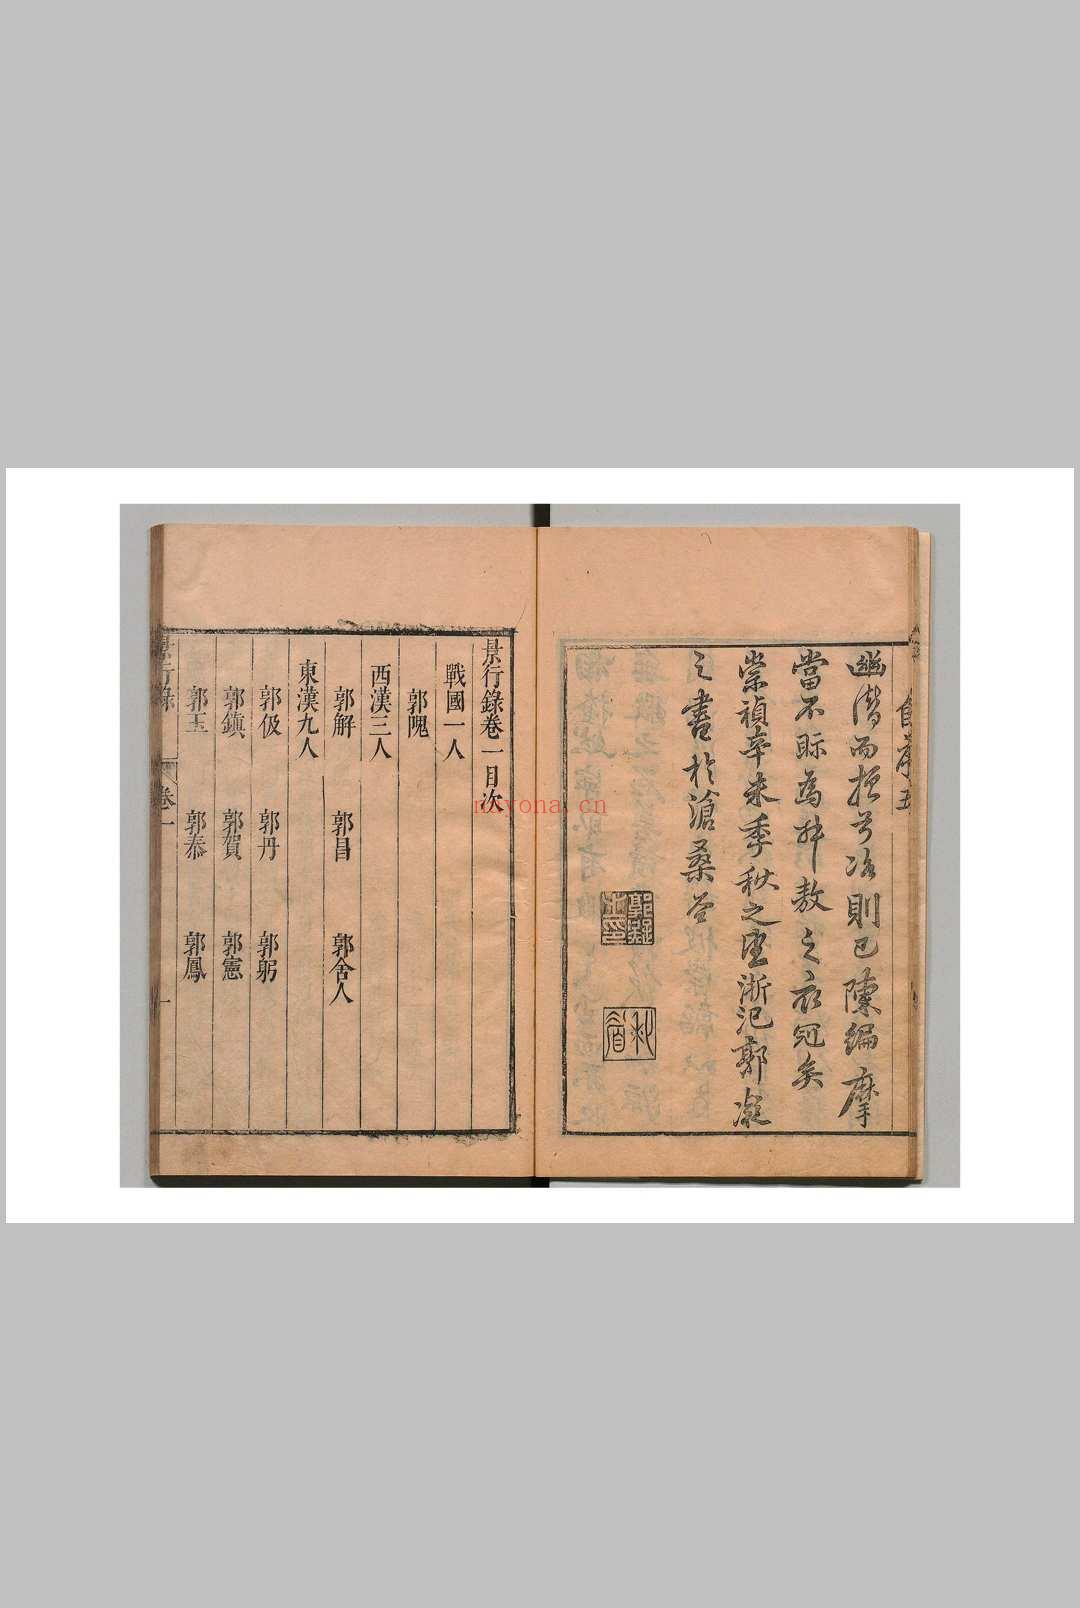 自序 五
幽潛而挹芳洛則已陳編摩
當不眎為叔敖之衣冠矣
崇禎辛未季秋之望浙氾郭凝
之書於滄桑谷
郭凝
之印
景行錄卷一目次
戰國一人
郭隗
西漢三人
郭解 郭昌 郭舍人
東漢九人
郭伋 郭丹 郭躬
郭鎮 郭賀 郭憲
郭玉 郭泰 郭鳳
景行錄 卷一 一
nxyona.cn